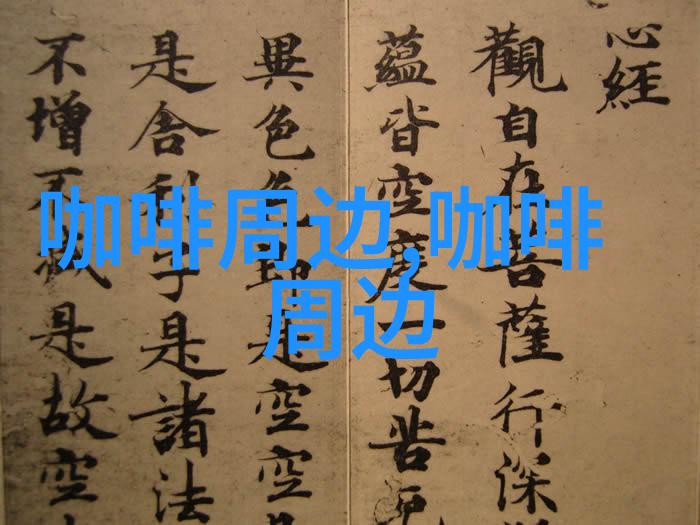 心經
觀自在菩薩行深
蘊皆空度一切苦厄
異色色即是空空
是舍利子是諸法
不增不減是故空
咖啡周边,咖啡
周边